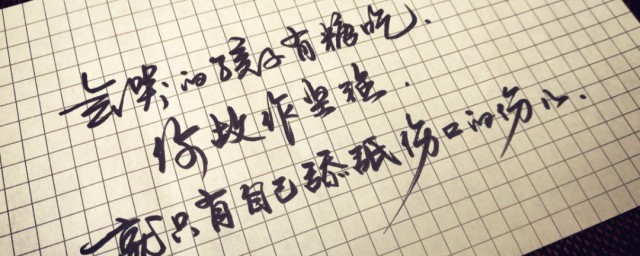 会哭的孩子有糖吃.
你故作坚强.
就只有自己舔舐伤口的伤心.